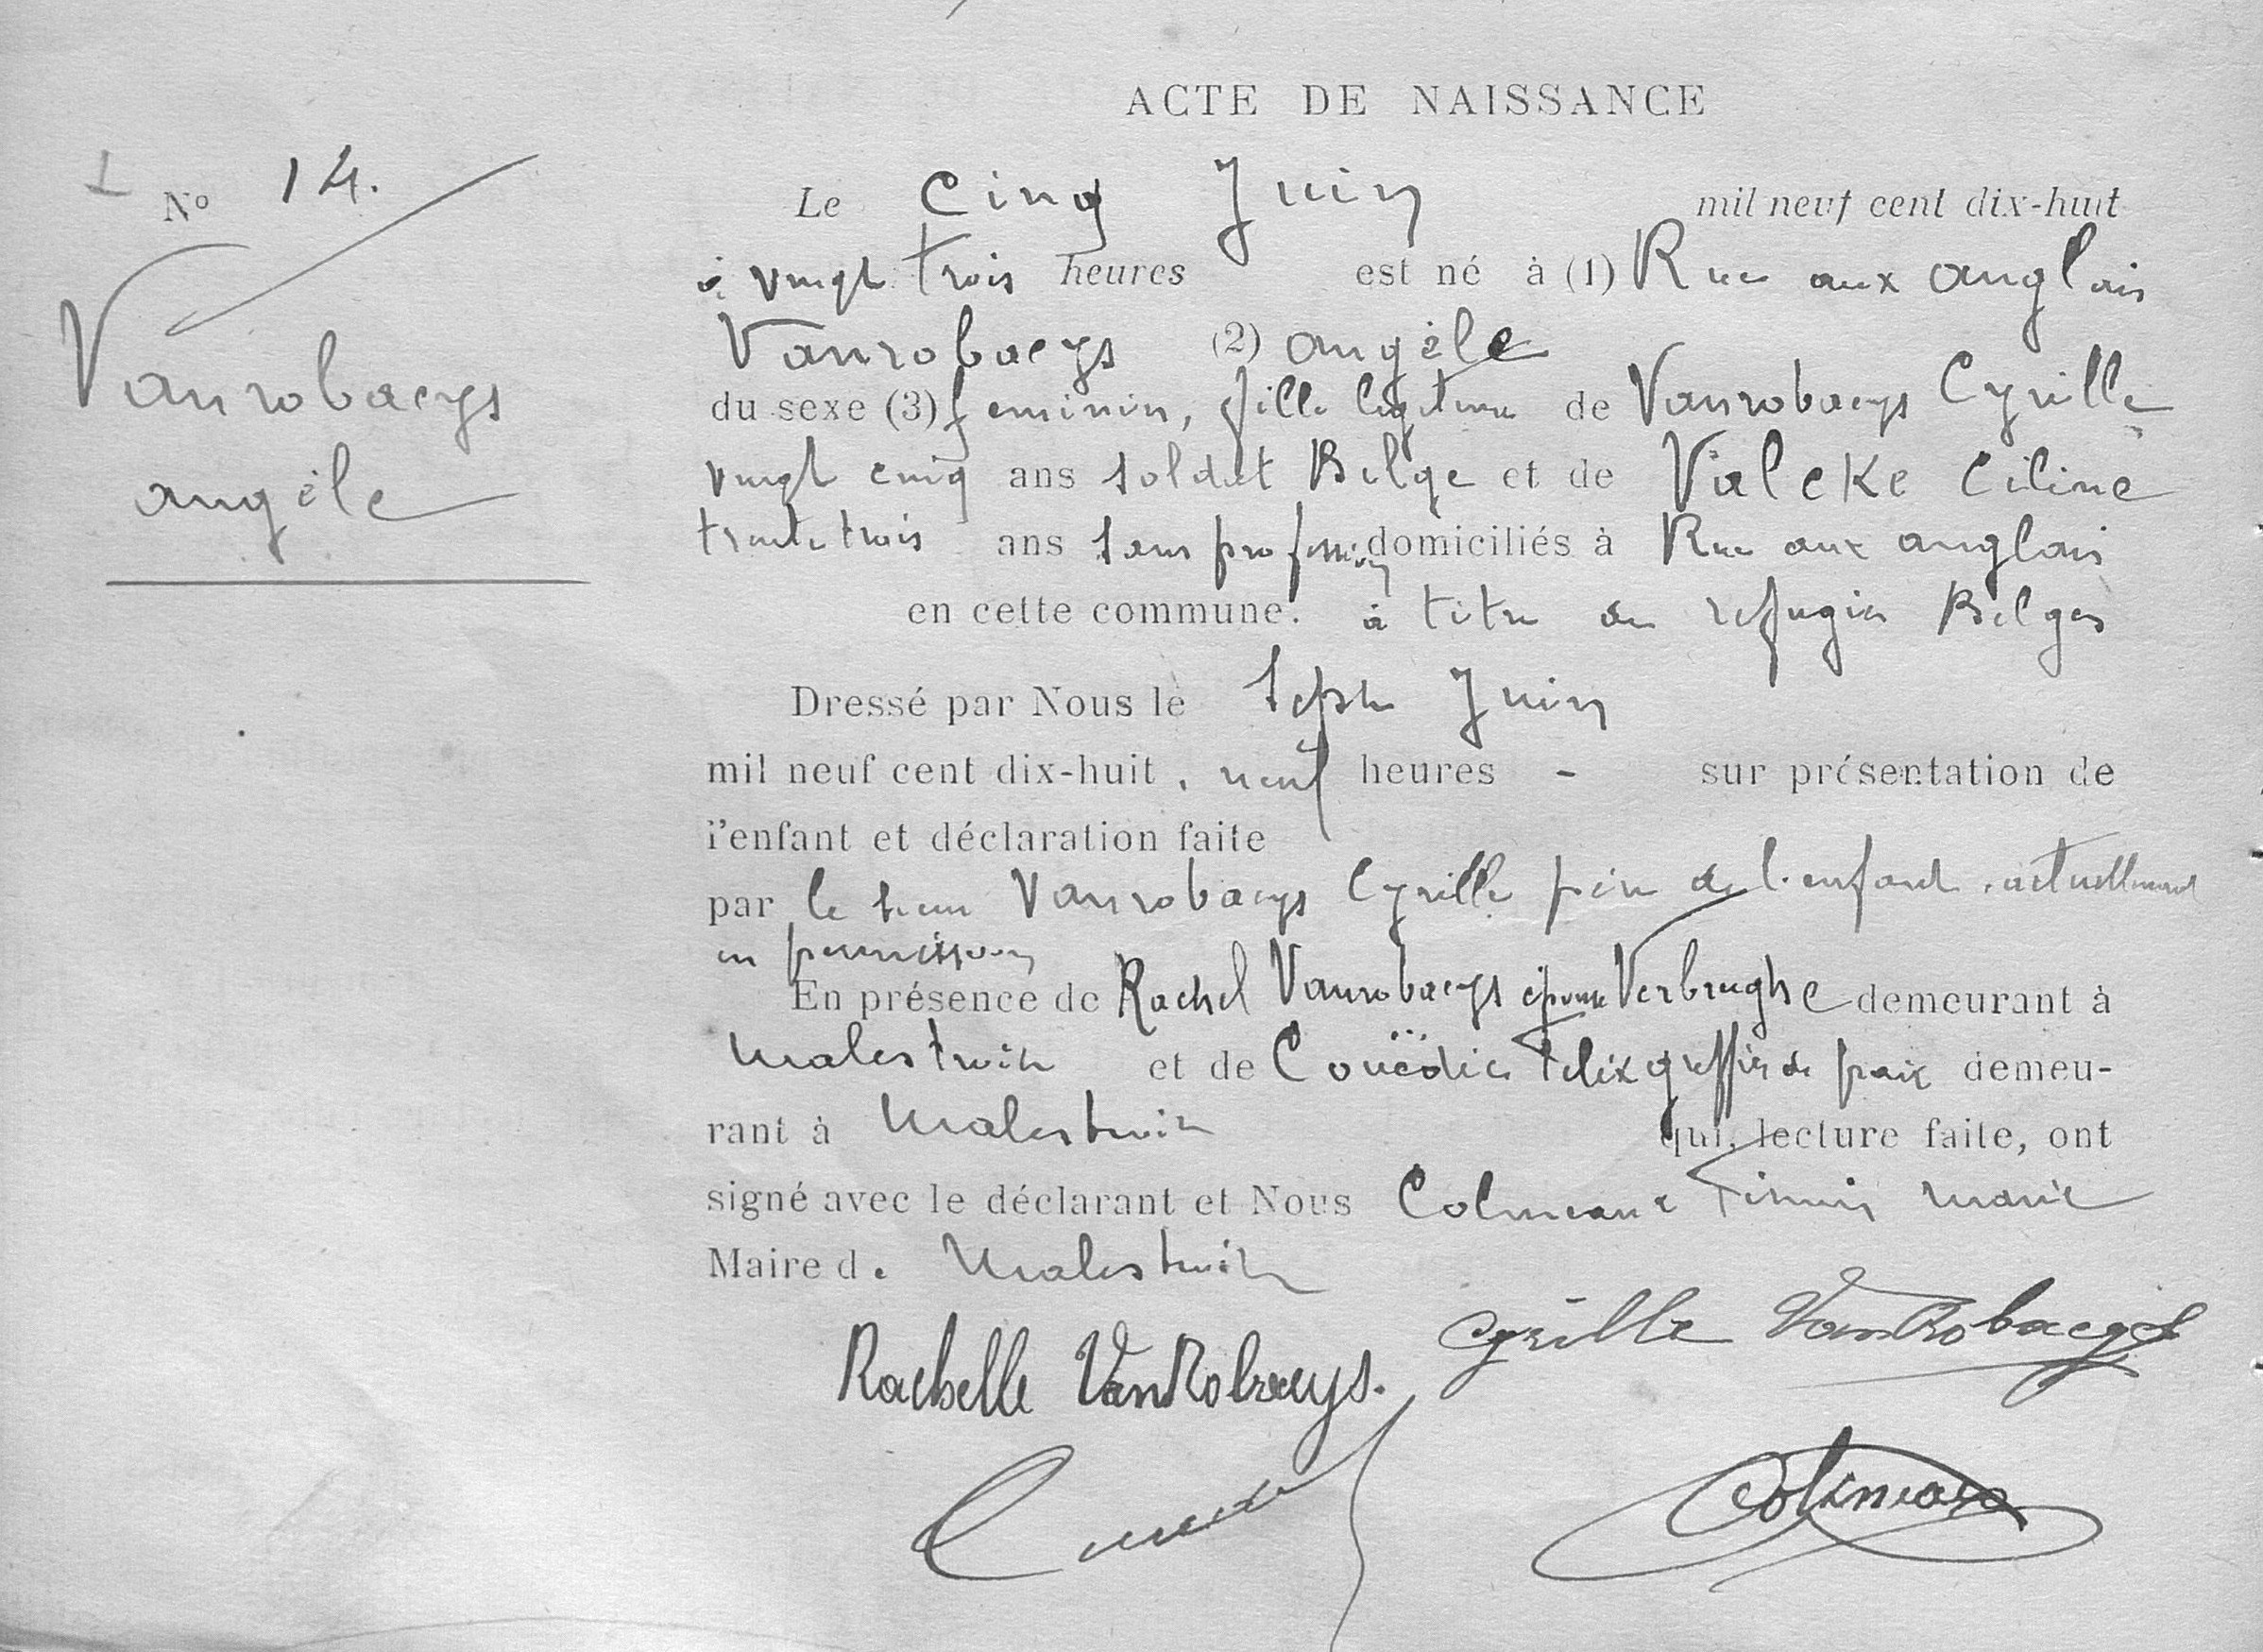 ACTE DE NAISSANCE
N° 14.
Vanrobaeys
angèle
Le Cinq Juin mil neuf cent dix-huit
à vingt trois heures est né à (1) Rue aux anglais
Vanrobaeys (2) angèle
du sexe (3) feminin, fille legitime de Vanrobaeys Cyrille
vingt cinq ans soldat Belge et de Valcke Céline
trente trois ans sans profession domiciliés à Rue aux anglais
en cette commune. à titre de refugiés Belges
Dressé par Nous le Sept Juin
mil neuf cent dix-huit, neuf heures - sur présentation de
l'enfant et déclaration faite
par le sieur Vanrobaeys Cyrille père de l'enfant, actuellement
en permission
En présence de Rachel Vanrobaeys épouse Verbrughe demeurant à
Malestroit et de Couëdic Felix greffier de paix demeu-
rant à Malestroit qui, lecture faite, ont
signé avec le déclarant et Nous Colmeaux Firmin Marie
Maire de Malestroit
Cyrille VanRobaeys
Rachelle VanRobaeys.
Colmeaux